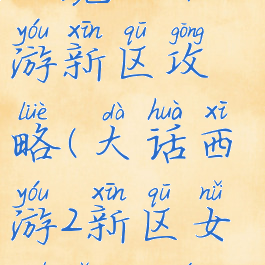 yóu xīn qū gōng
游新区攻
lüè dà huà xī
略(大话西
yóu xīn qū nǚ
游2新区女